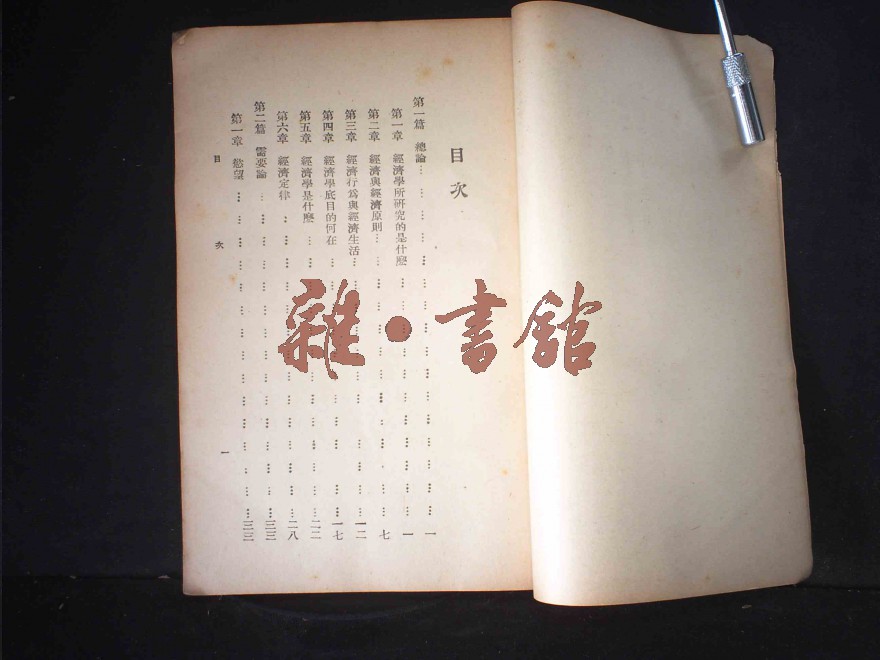 目次
第一篇 總論……一
第一章 經濟學所研究的是什麼……一
第二章 經濟與經濟原則……七
第三章 經濟行為與經濟生活……一二
第四章 經濟學底目的何在……一七
第五章 經濟學是什麼……二二
第六章 經濟定律……二八
第二篇 需要論……三三
第一章 慾望……三三
目次 一
雜·書館